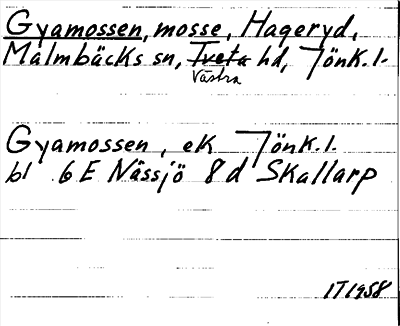 Gyamossen, mosse, Hageryd,
Malmbäcks sn, Tveta hd, Jönk.l.
Västra
Gyamossen, ek Jönk.l.
bl 6E Nässjö 8d Skallarp
IT1958